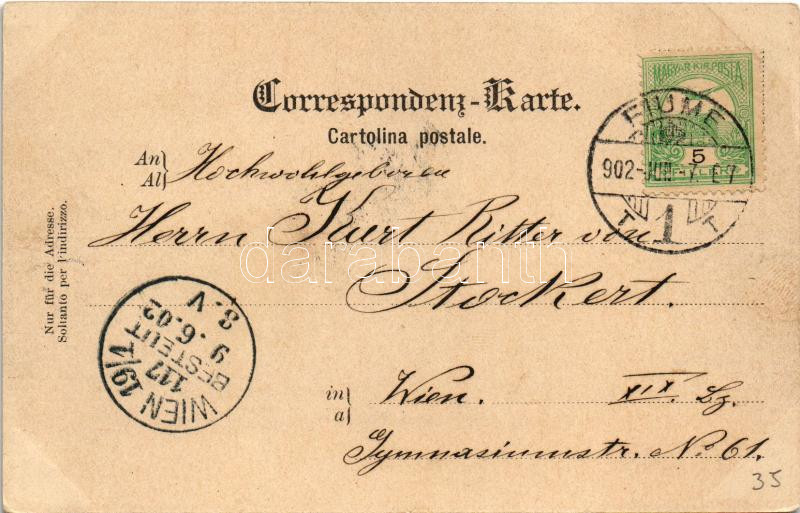 Correspondenz-Karte.
Cartolina postale.
MAGYAR KIR. POSTA
5
FILLÉR
FIUME
902-JUN.-7. E7
T 1 T
An
Al
Hochwohlgeboren
Herrn Kurt Ritter von
Stockert.
in
a
Wien. XIX. Bz.
Gymnasiumstr. No 61.
Nur für die Adresse.
Soltanto per l'indirizzo.
WIEN 19/1
117
BESTELLT
9.6.02
8.V
darabanth
35